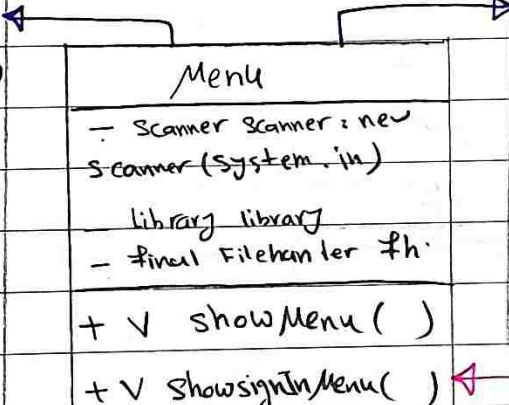 Menu
- Scanner scanner : new
Scanner (System.in)
library library
- final Filehanler fh.
+ V showMenu( )
+ V ShowsignInMenu( )